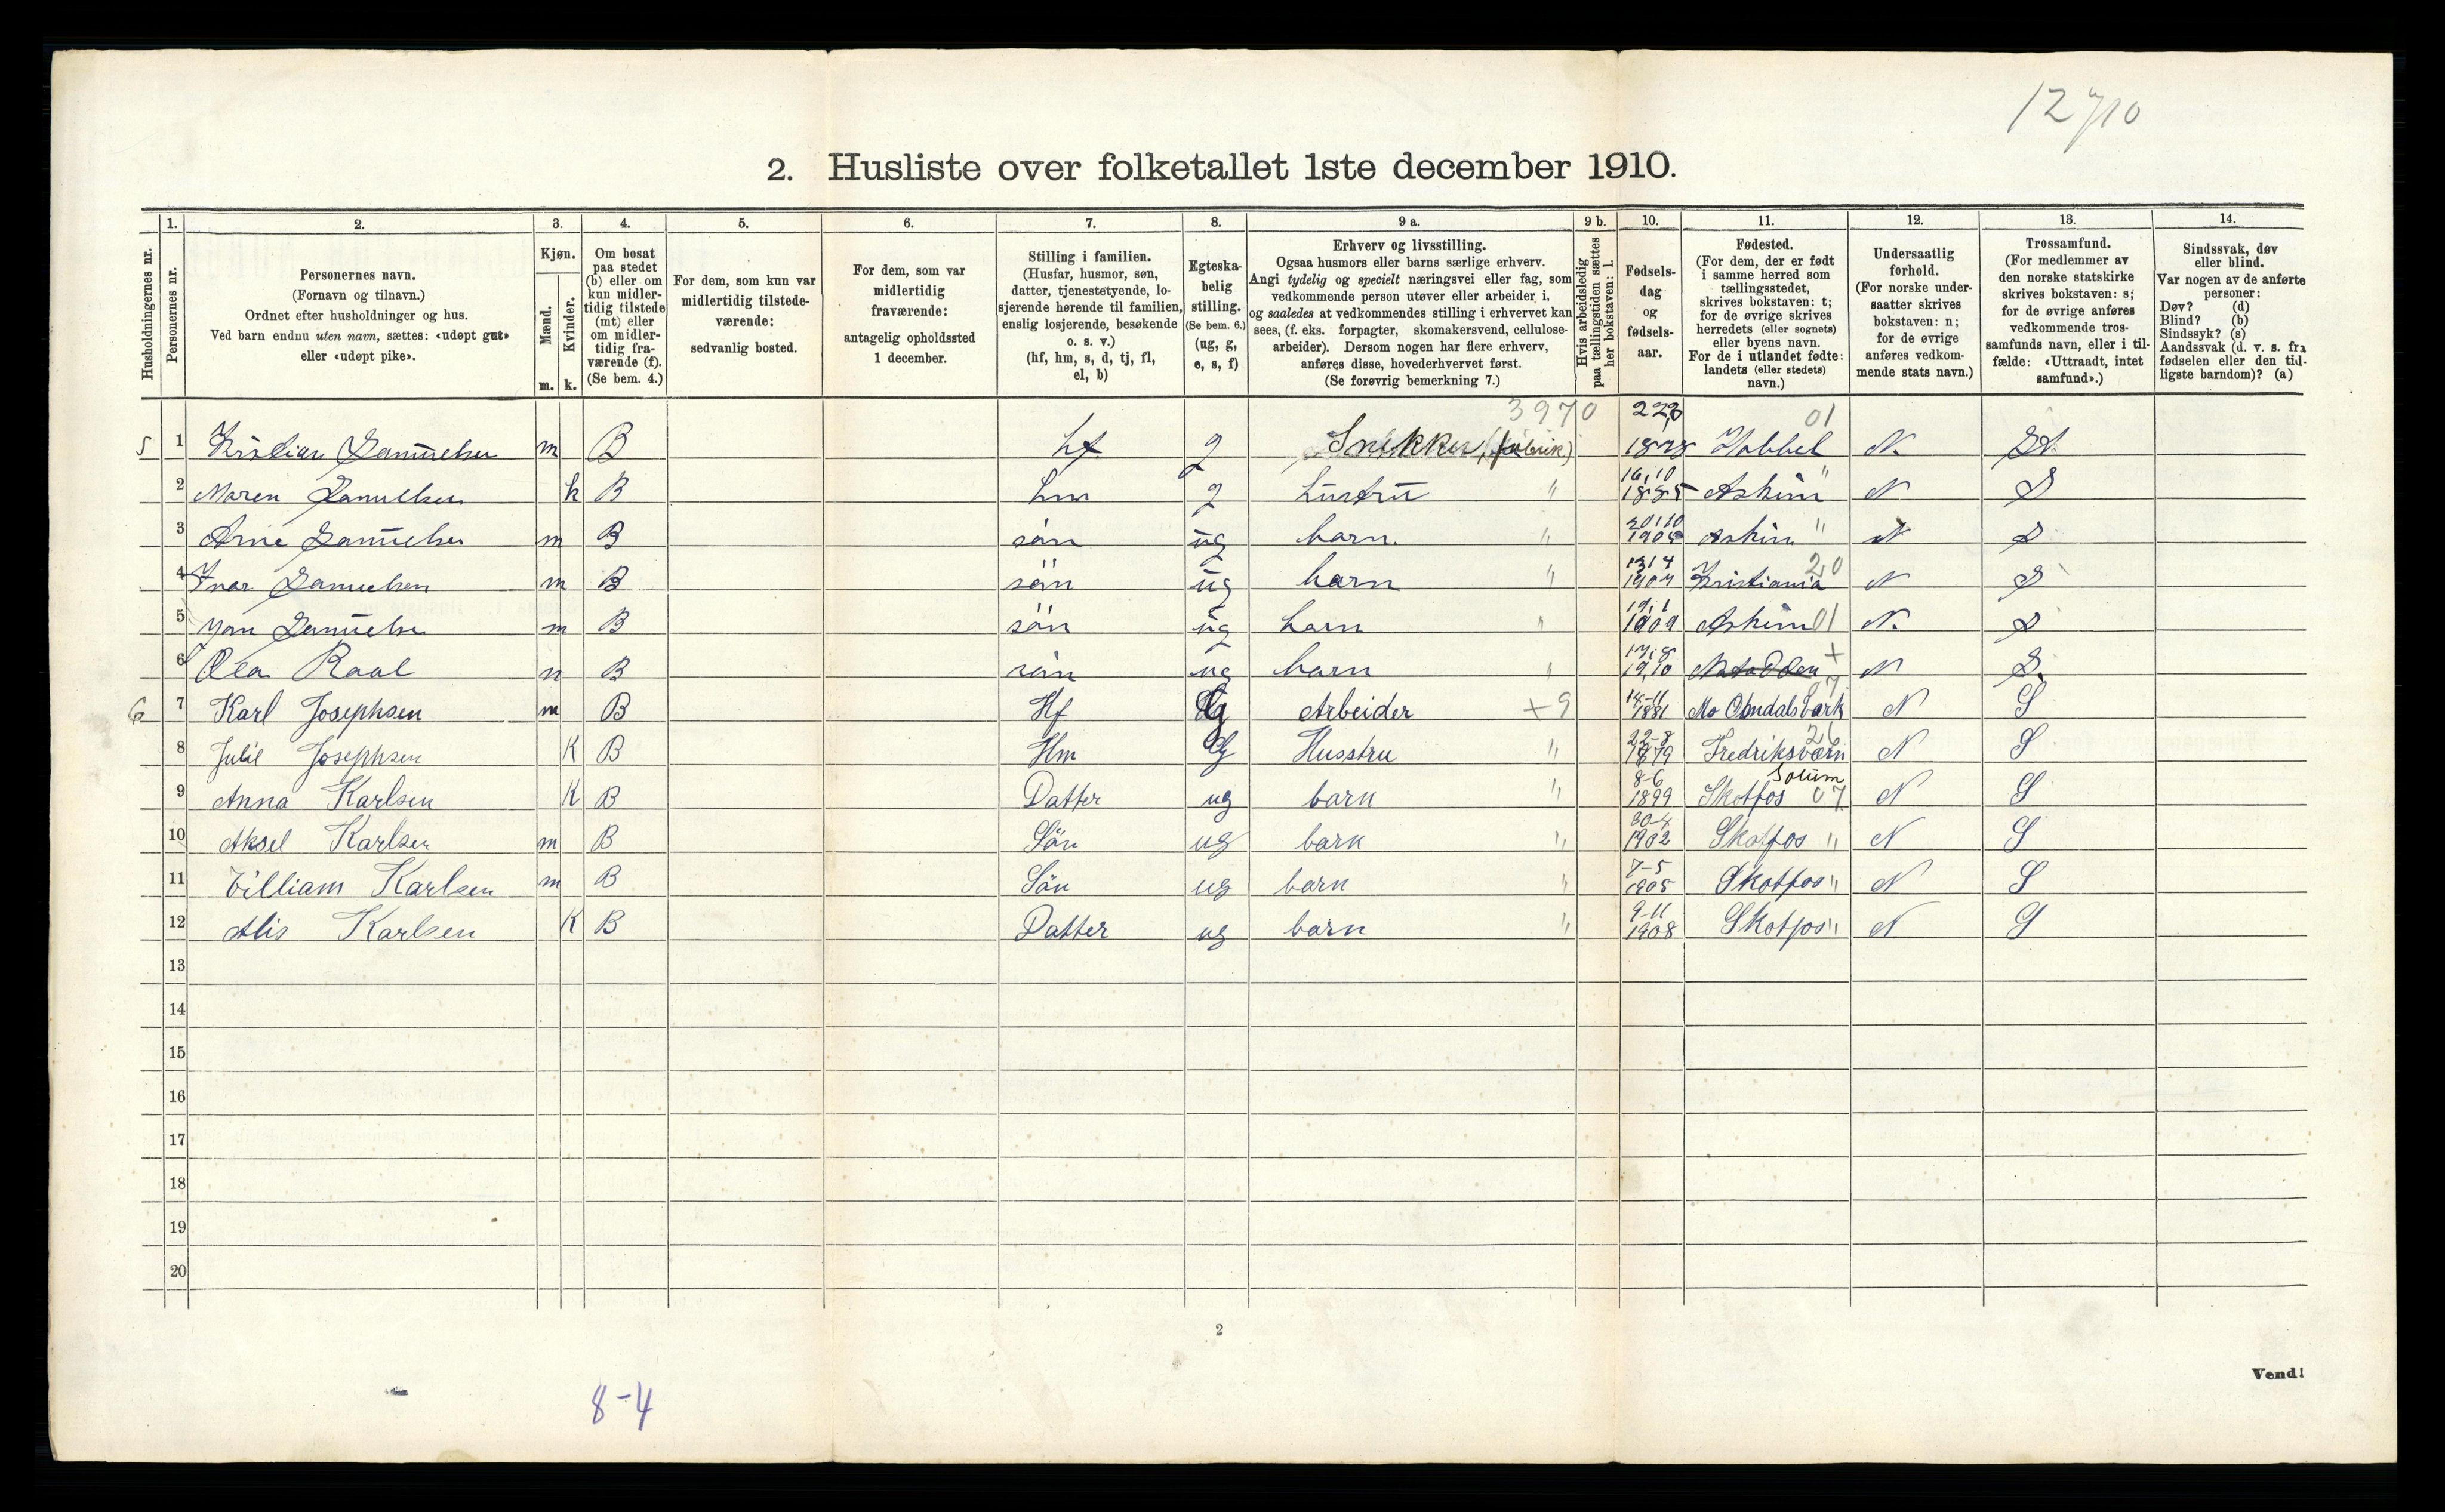 2. Husliste over folketallet 1ste december 1910.
Husholdningernes nr.
1. Personernes nr.
2. Personernes navn.
(Fornavn og tilnavn.)
Ordnet efter husholdninger og hus.
Ved barn endnu uten navn, sættes: «udøpt gut»
eller «udøpt pike».
3. Kjøn.
Mænd. m.
Kvinder. k.
4. Om bosat
paa stedet
(b) eller om
kun midler-
tidig tilstede
(mt) eller
om midler-
tidig fra-
værende (f).
(Se bem. 4.)
5. For dem, som kun var
midlertidig tilstede-
værende:
sedvanlig bosted.
6. For dem, som var
midlertidig
fraværende:
antagelig opholdssted
1 december.
7. Stilling i familien.
(Husfar, husmor, søn,
datter, tjenestetyende, lo-
sjerende hørende til familien,
enslig losjerende, besøkende
o. s. v.)
(hf, hm, s, d, tj, fl,
el, b)
8. Egteska-
belig
stilling.
(Se bem. 6.)
(ug, g,
e, s, f)
9 a. Erhverv og livsstilling.
Ogsaa husmors eller barns særlige erhverv.
Angi tydelig og specielt næringsvei eller fag, som
vedkommende person utøver eller arbeider i,
og saaledes at vedkommendes stilling i erhvervet kan
sees, (f. eks. forpagter, skomakersvend, cellulose-
arbeider). Dersom nogen har flere erhverv,
anføres disse, hovederhvervet først.
(Se forøvrig bemerkning 7.)
9 b. Hvis arbeidsledig
paa tællingstiden sættes
her bokstaven: l.
10. Fødsels-
dag
og
fødsels-
aar.
11. Fødested.
(For dem, der er født
i samme herred som
tællingsstedet,
skrives bokstaven: t;
for de øvrige skrives
herredets (eller sognets)
eller byens navn.
For de i utlandet fødte:
landets (eller stedets)
navn.)
12. Undersaatlig
forhold.
(For norske under-
saatter skrives
bokstaven: n;
for de øvrige
anføres vedkom-
mende stats navn.)
13. Trossamfund.
(For medlemmer av
den norske statskirke
skrives bokstaven: s;
for de øvrige anføres
vedkommende tros-
samfunds navn, eller i til-
fælde: «Uttraadt, intet
samfund».)
14. Sindssvak, døv
eller blind.
Var nogen av de anførte
personer:
Døv? (d)
Blind? (b)
Sindssyk? (s)
Aandssvak (d. v. s. fra
fødselen eller den tid-
ligste barndom)? (a)
3970 01
5 1 Kristian Samuelsen m B hf g Snekker (fabrik) 1878 Hobbel N.
2 Maren Samuelsen k B hm g hustru " 16,10 1885 Askim " N S
3 Arne Samuelsen m B sön ug barn. " 20,10 Askim " N S
4 Ivar Samuelsen m B sön ug barn " 1907 Kristiania 20 N S
5 Samuelsen m B sön ug barn " 19,1 1909 Askim 01 N. S
6 Ola Raal m B sön ug barn " 1910 Notodden + N S.
6 7 Karl Josephsen m B Hf G Arbeider + 9 14-11 1881 Mo N S
8 Julie Josephsen K B Hm G Husstru " 22-8 1879 Fredriksværn 26 N S
9 Anna Karlsen K B Datter ug barn " 8-6 1899 Skotfos Solum 07 N S
10 Aksel Karlsen m B Sön ug barn " 30-4 1902 Skotfos " N S
11 Villiam Karlsen m B Sön ug barn " 7-5 1905 Skotfos " N S
12 Alis Karlsen K B Datter ug barn " 9-11 1908 Skotfos " N S
13
14
15
16
17
18
19
20
2
Vend!
8-4